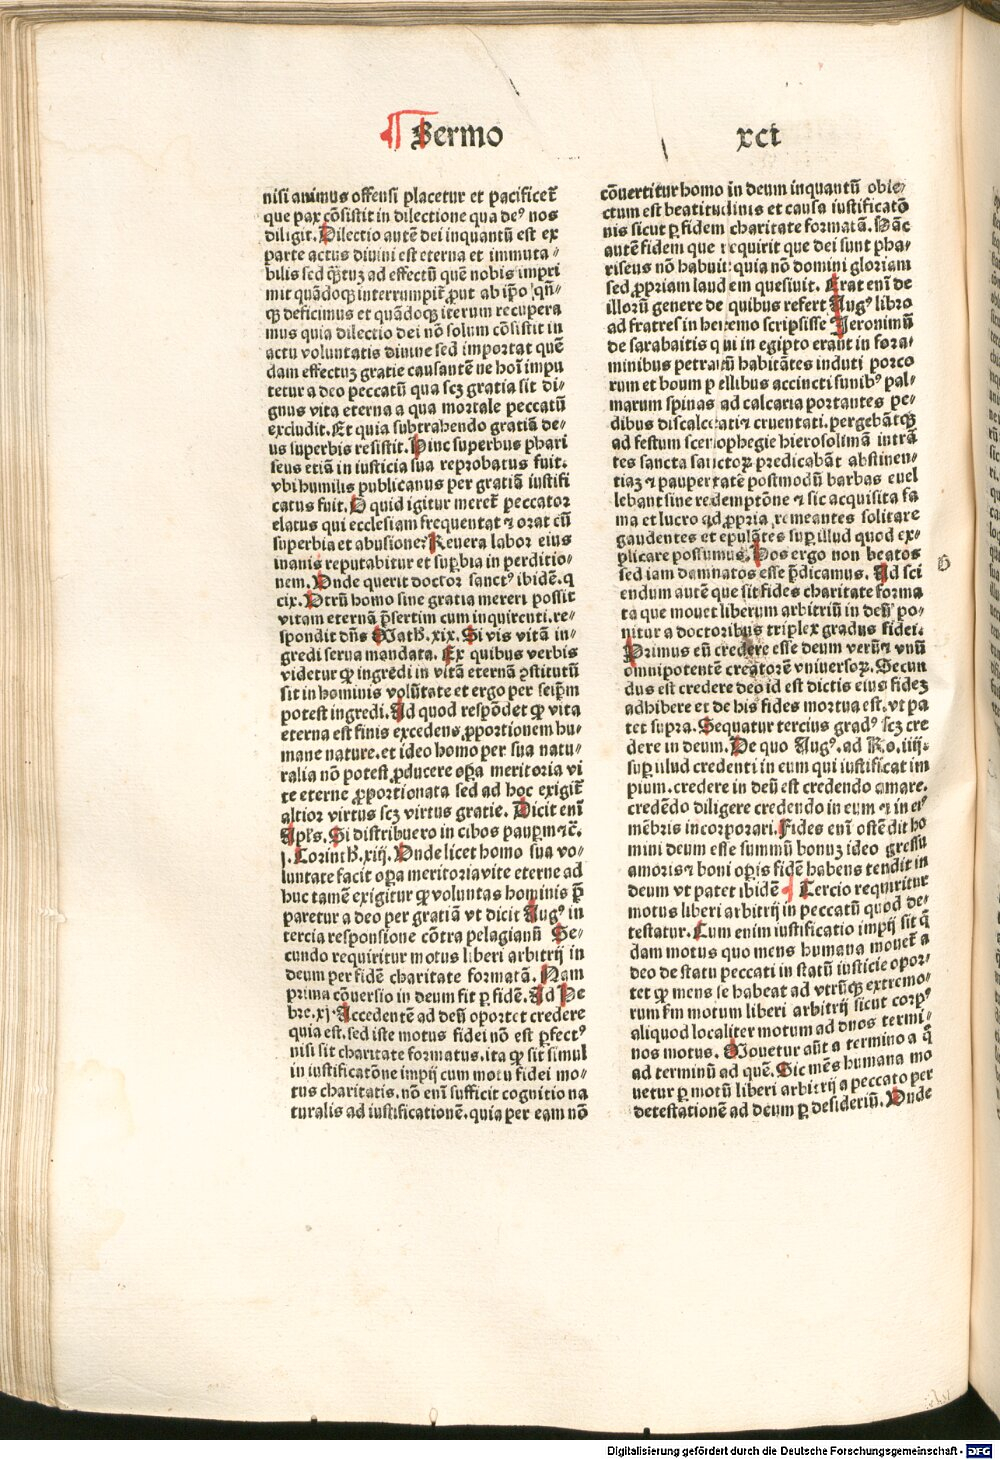 Sermo xci
nisi animus offensi placetur et pacificet᷑
que pax cõsistit in dilectione qua de⁹ nos
diligit. Dilectio autẽ dei inquantũ est ex
parte actus diuini est eterna et immuta⸗
bilis sed q̃tuꝫ ad effectũ quẽ nobis impri
mit quãdoqꝫ interrumpit᷑ ꝓut ab ip̃o qñ⸗
qꝫ deficimus et quãdoqꝫ iterum recupera
mus quia dilectio dei nõ solum cõsistit in
actu voluntatis diuine sed importat quẽ
dam effectuꝫ gratie causantẽ ne hoĩ impu
tetur a deo peccatũ qua scꝫ gratia sit di⸗
gnus vita eterna a qua mortale peccatũ
excludit. Et quia subtrahendo gratiã de⸗
us superbis resistit. Hinc superbus phari
seus etiã in iusticia sua reprobatus fuit.
vbi humilis publicanus per gratiã iustifi
catus fuit. O quid igitur meret᷑ peccator
elatus qui ecclesiam frequentat ⁊ orat cũ
superbia et abusione? Reuera labor eius
inanis reputabitur et suꝑbia in perditio⸗
nem. Unde querit doctor sanct⁹ ibidẽ. q
cix. Utrũ homo sine gratia mereri possit
vitam eternã p̃sertim cum inquirenti. re⸗
spondit dñs Math. xix. Si vis vitã in⸗
gredi serua mandata. Ex quibus verbis
videtur ꝙ ingredi in vitã eternã ꝯstitutũ
sit in hominis volũtate et ergo per seip̃m
potest ingredi. Ad quod respõdet ꝙ vita
eterna est finis excedens ꝓportionem hu⸗
mane nature. et ideo homo per sua natu⸗
ralia nõ potest ꝓducere oꝑa meritoria vi
te eterne ꝓportionata sed ad hoc exigit᷑
altior virtus scꝫ virtus gratie. Dicit enĩ
Apl̃s. Si distribuero in cibos pauꝑm ⁊c̃.
j. Corinth. xiij. Unde licet homo sua vo⸗
luntate facit oꝑa meritoria vite eterne ad
huc tamẽ exigitur ꝙ voluntas hominis p̃
paretur a deo per gratiã vt dicit Aug⁹ in
tercia responsione cõtra pelagianũ Se⸗
cundo requiritur motus liberi arbitrij in
deum per fidẽ charitate formatã. Nam
prima cõuersio in deum fit ꝑ fidẽ. Ad He
bre. xj. Accedentẽ ad deũ oportet credere
quia est. sed iste motus fidei nõ est ꝑfect⁹
nisi sit charitate formatus. ita ꝙ sit simul
in iustificatõne impij cum motu fidei mo⸗
tus charitatis. nõ enĩ sufficit cognitio na
turalis ad iustificationẽ. quia per eam nõ
cõuertitur homo in deum inquantũ obie⸗
ctum est beatitudinis et causa iustificatõ
nis sicut ꝑ fidem charitate formatã. Hãc
autẽ fidem que requirit que dei sunt pha⸗
riseus nõ habuit quia nõ domini gloriam
sed ꝓpriam laudem quesiuit. Erat enĩ de
illorũ genere de quibus refert Aug⁹ libro
ad fratres in heremo scripsisse Jeronimũ
de sarabaitis qui in egipto erãnt in fora⸗
minibus petrarũ habitãtes induti porco
rum et boum pellibus accincti funib⁹ pal⸗
marum spinas ad calcaria portantes pe⸗
dibus discalceati ⁊ cruentati. pergebãtqꝫ
ad festum scenophegie hierosolimã intrã
tes sancta sanctoꝝ predicabãt abstinen⸗
tiaꝫ ⁊ paupertatẽ postmodũ barbas euel
lebant sine redemptõne ⁊ sic acquisita fa
ma et lucro ad ꝓpria remeantes solitare
gaudentes et epulãtes suꝑ illud quod ex⸗
plicare possumus. Hos ergo non beatos
sed iam damnatos esse p̃dicamus. Ad sci
endum autẽ que sit fides charitate forma
ta que mouet liberum arbitriũ in deũ po⸗
nitur a doctoribus triplex gradus fidei.
Primus eũ credere esse deum verũ ⁊ vnũ
omnipotentẽ creatorẽ vniuersoꝝ. Secun
dus est credere deo id est dictis eius fidez
adhibere et de his fides mortua est. vt pa
tet supra. Sequatur tercius grad⁹ scꝫ cre
dere in deum. De quo Aug⁹. ad Ro. iiij.
suꝑ illud credenti in eum qui iustificat im
pium. credere in deũ est credendo amare.
credẽdo diligere credendo in eum ⁊ in ei⁹
mẽbris incorporari. Fides enĩ ostẽdit ho
mini deum esse summũ bonuꝫ ideo gressu
amoris ⁊ boni oꝑis fidẽ habens tendit in
deum vt patet ibidẽ Tercio requiritur
motus liberi arbitrij in peccatũ quod de⸗
testatur. Cum enim iustificatio impij sit q̃
dam motus quo mens humana mouet᷑ a
deo de statu peccati in statũ iusticie opor⸗
tet ꝙ mens se habeat ad vtrũqꝫ extremo⸗
rum fm motum liberi arbitrij sicut corp⁹
aliquod localiter motum ad duos termi⸗
nos motus. Mouetur aũt a termino a q̃
ad terminũ ad quẽ. Sic mẽs humana mo
uetur ꝑ motũ liberi arbitrij a peccato per
detestationẽ ad deum ꝑ desideriũ. Unde
Digitalisierung gefördert durch die Deutsche Forschungsgemeinschaft - DFG